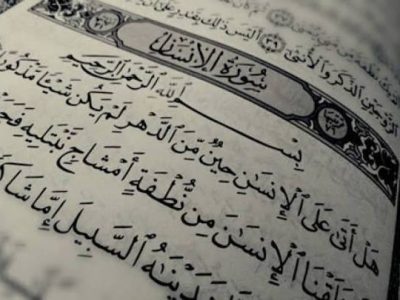 الزَّوْجَيْنِ الذَّكَرَ وَالْأُنثَىٰ ۝٣٩ أَلَيْسَ ذَٰلِكَ بِقَٰدِرٍ عَلَىٰ أَن
سُورَةُ الإِنسَانِ
بِسْمِ اللَّهِ الرَّحْمَٰنِ الرَّحِيمِ
هَلْ أَتَىٰ عَلَى الْإِنسَٰنِ حِينٌ مِّنَ الدَّهْرِ لَمْ يَكُن شَيْـًٔا مَّذْكُورًا
خَلَقْنَا الْإِنسَٰنَ مِن نُّطْفَةٍ أَمْشَاجٍ نَّبْتَلِيهِ
هَدَيْنَٰهُ السَّبِيلَ إِمَّا شَاكِرًا